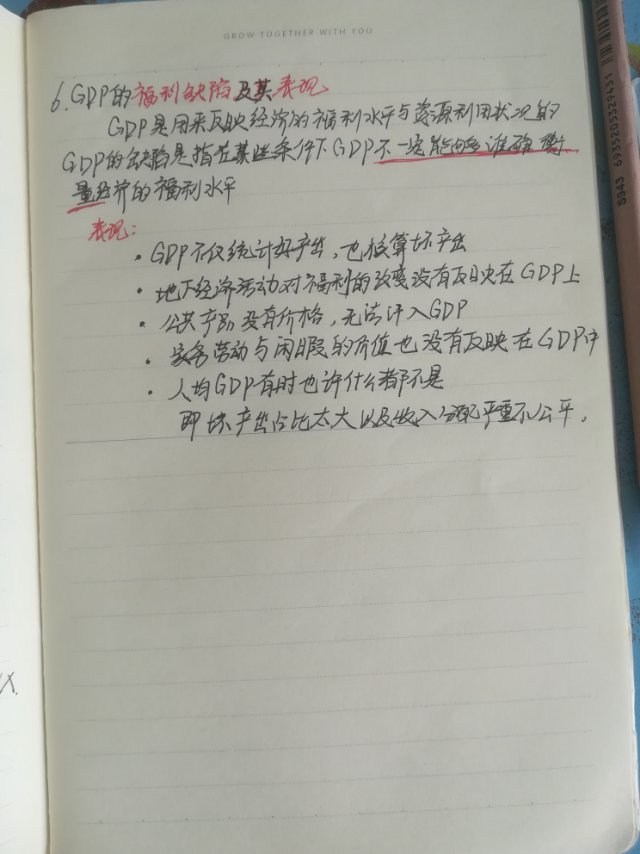 GROW TOGETHER WITH YOU
6.GDP的福利缺陷及其表现
GDP是用来反映经济的福利水平与资源利用状况的
GDP的缺陷是指在某些条件下GDP不一定能够准确衡
量经济的福利水平
表现:
·GDP不仅统计好产出,也核算坏产出
·地下经济活动对福利的改变没有反映在GDP上
·公共产品没有价格,无法计入GDP
·家务劳动与闲暇的价值也没有反映在GDP中
·人均GDP有时也许什么都不是
即坏产出占比太大以及收入分配严重不公平.
S943 6935205329431